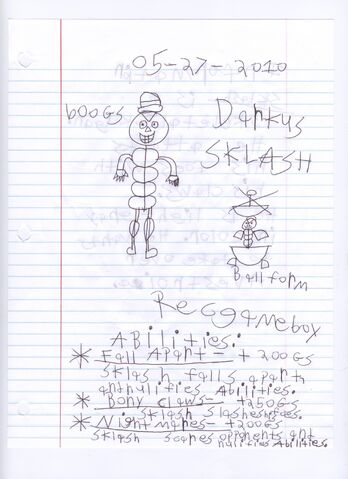 05-27-2010
600GS
Darkus
SKLASH
Ball form
Reggamebox
Abilities:
* Fall Apart - + 200GS
Sklash falls apart
Abilities.
* Bony claws - +250GS
Sklash slashes
* Nightmares - +200GS
Sklash Scares opponents ant
nullities Abilities.